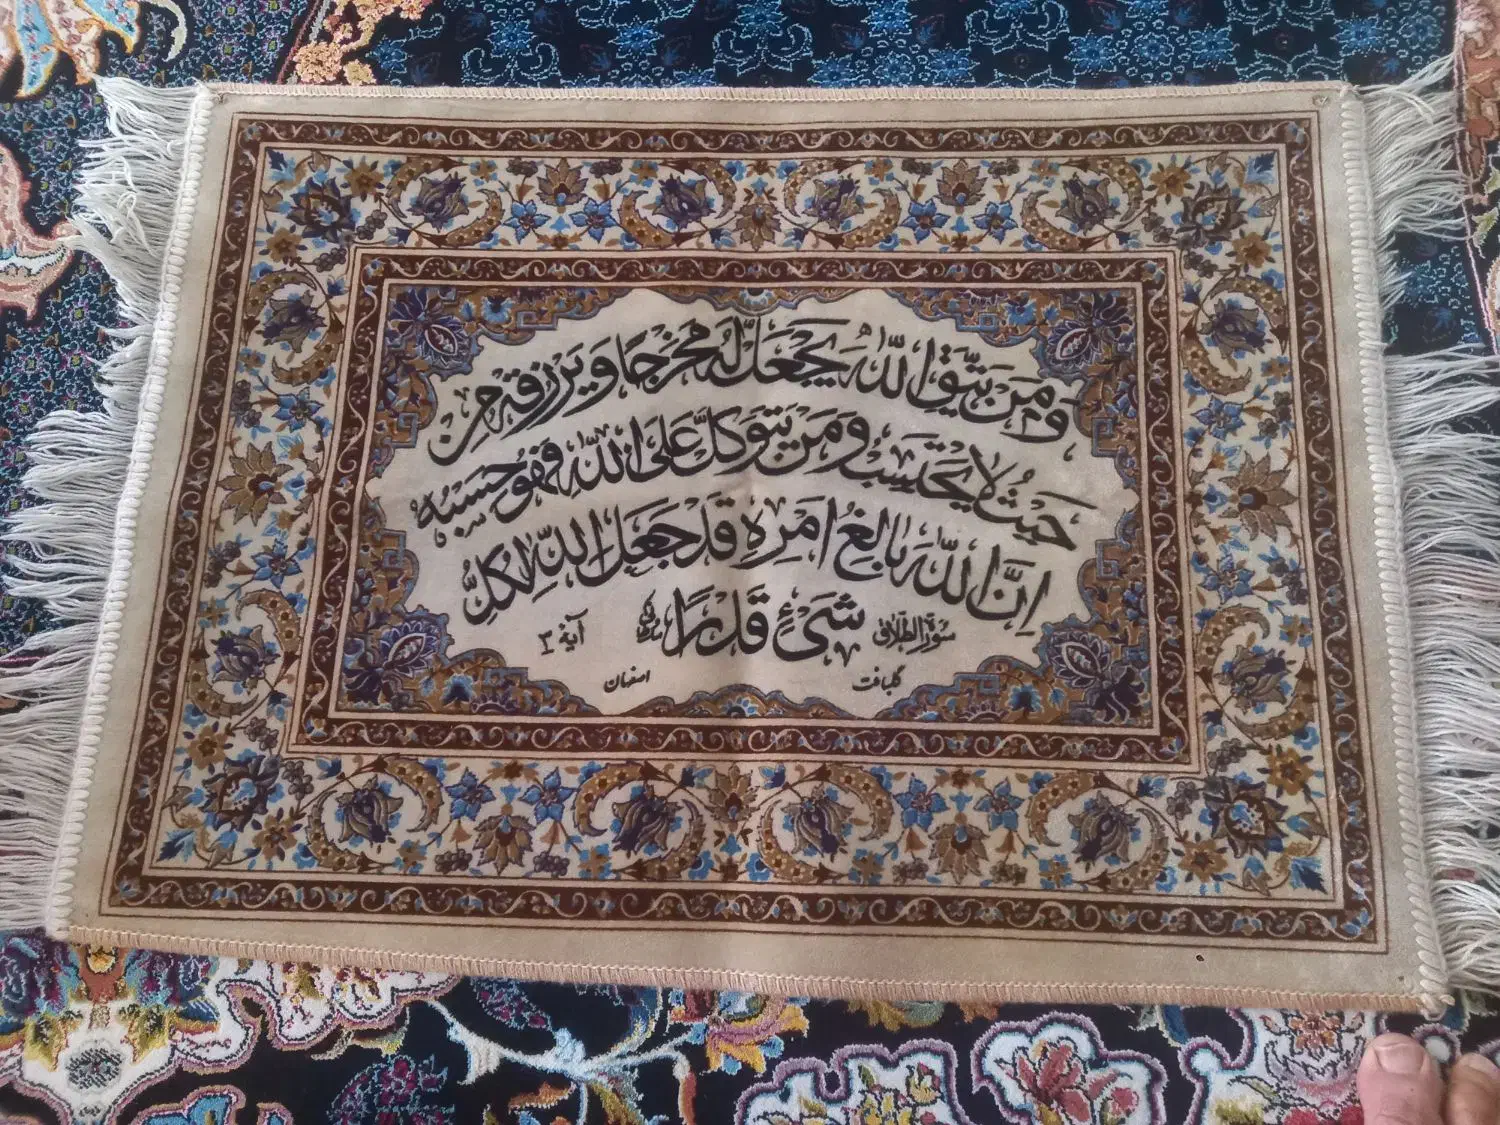 وَمَنْ يَتَّقِ اللّٰهَ يَجْعَلْ لَهُ مَخْرَجًا وَيَرْزُقْهُ مِنْ
حَيْثُ لَا يَحْتَسِبُ وَمَنْ يَتَوَكَّلْ عَلَى اللّٰهِ فَهُوَ حَسْبُهُ
اِنَّ اللّٰهَ بَالِغُ اَمْرِهِ قَدْ جَعَلَ اللّٰهُ لِكُلِّ
شَیْءٍ قَدْرًا
سورة الطلاق آیة ٣
گلبافت اصفهان